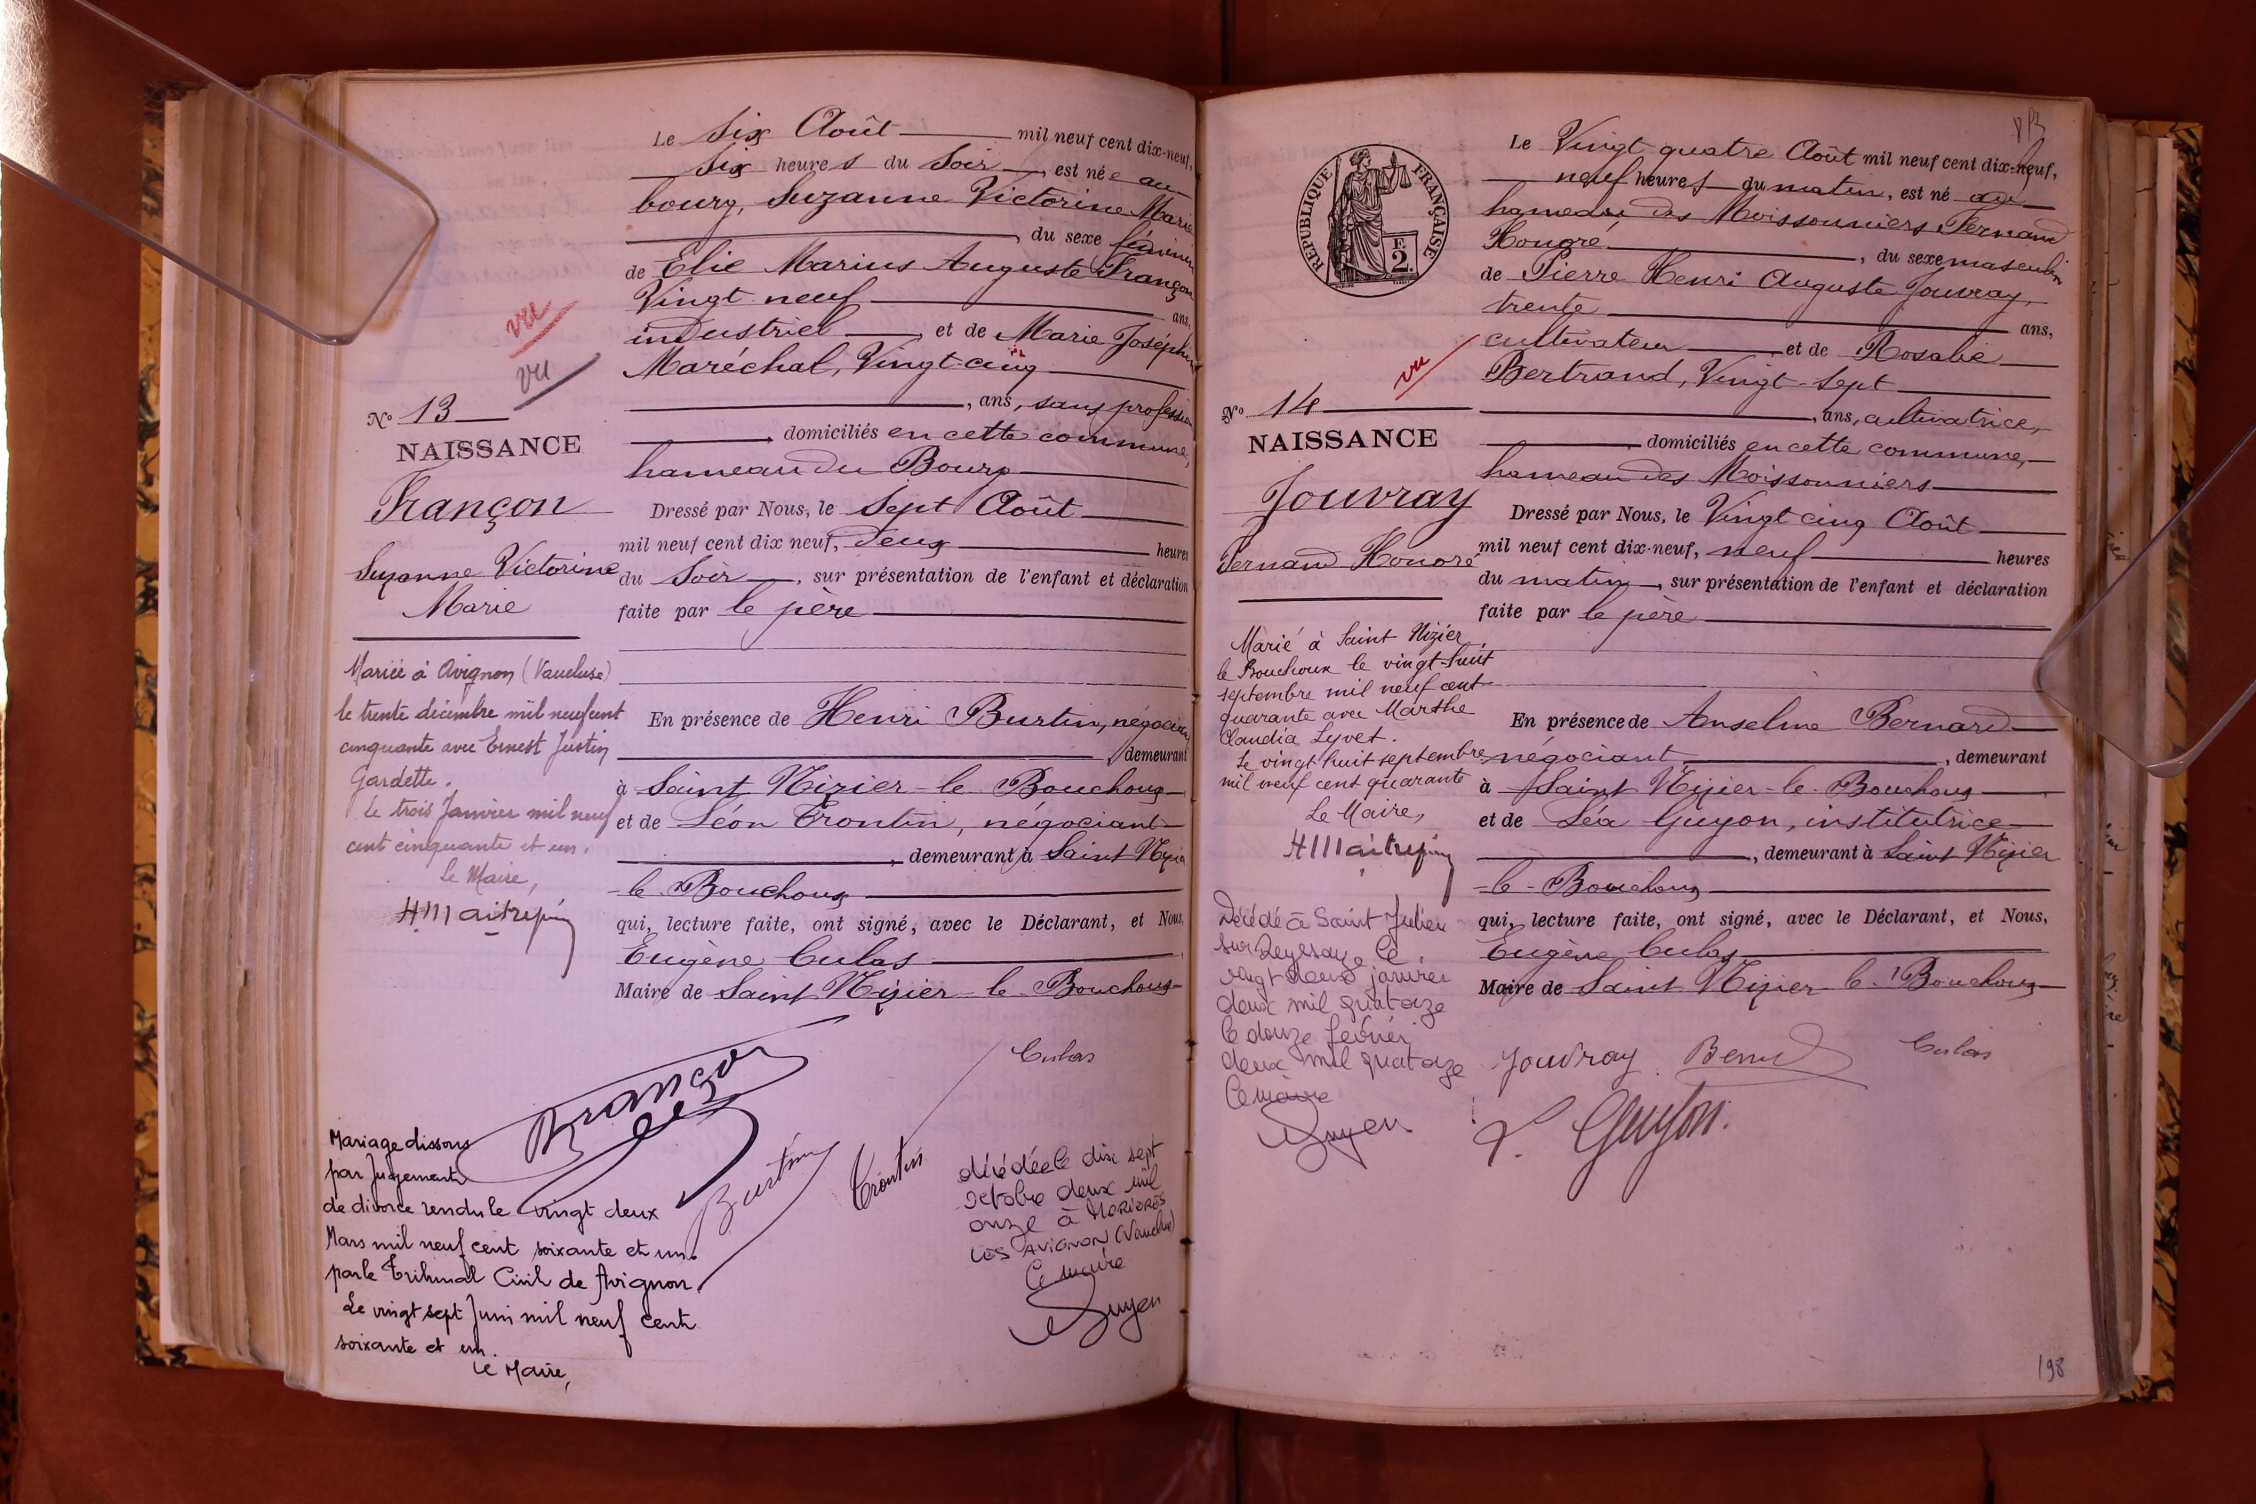 Le Six Août mil neuf cent dix-neuf,
six heures du Soir, est née au
bourg, Suzanne Victorine Marie
, du sexe féminin
de Elie Marius Auguste Françon
Vingt neuf ans,
industriel, et de Marie Joséphine
Maréchal, Vingt-cinq
, ans, sans profession
, domiciliés en cette commune,
hameau du Bourg
Dressé par Nous, le Sept Août
mil neuf cent dix neuf, Deux heures
du Soir, sur présentation de l'enfant et déclaration
faite par le père
En présence de Henri Burtin, négociant
, demeurant
à Saint Nizier-le-Bouchoux
et de Léon Trontin, négociant
, demeurant à Saint Nizier
-le-Bouchoux
qui, lecture faite, ont signé, avec le Déclarant, et Nous,
Eugène Culas
Maire de Saint Nizier-le-Bouchoux
vu
vu
N° 13
NAISSANCE
Françon
Suzanne Victorine
Marie
Mariée à Avignon (Vaucluse)
le trente décembre mil neuf cent
cinquante avec Ernest Justin
Gardette.
Le trois Janvier mil neuf
cent cinquante et un.
Le Maire,
Françon
Culas
Burtin
Trontin
Mariage dissous
par Jugement
de divorce rendu le vingt deux
Mars mil neuf cent soixante et un
par le Tribunal Civil de Avignon
Le vingt sept Juin mil neuf cent
soixante et un.
Le Maire,
décédée le dix sept
octobre deux mil
onze à MORIERES
LES AVIGNON (Vaucluse)
Le maire
Le Vingt quatre Août mil neuf cent dix-neuf,
neuf heures du matin, est né au
hameau des Moissonniers Fernand
Honoré, du sexe masculin
de Pierre Henri Auguste Jouvray,
trente ans,
cultivateur, et de Rosalie
Bertrand, Vingt-Sept
, ans, cultivatrice,
, domiciliés en cette commune,
hameau des Moissonniers
Dressé par Nous, le Vingt cinq Août
mil neuf cent dix-neuf, neuf heures
du matin, sur présentation de l'enfant et déclaration
faite par le père
En présence de Anselme Bernard
négociant, demeurant
à Saint Nizier-le-Bouchoux
et de Léa Guyon, institutrice
, demeurant à Saint Nizier
-le-Bouchoux
qui, lecture faite, ont signé, avec le Déclarant, et Nous,
Eugène Culas
Maire de Saint Nizier-le-Bouchoux
RÉPUBLIQUE FRANÇAISE
F.
2.
vu
N° 14
NAISSANCE
Jouvray
Fernand Honoré
Marié à Saint Nizier
le Bouchoux le vingt-huit
septembre mil neuf cent
quarante avec Marthe
Claudia Lyvet.
Le vingt huit septembre
mil neuf cent quarante
Le Maire,
Décédé à Saint Julien
sur Reyssouze le
vingt deux janvier
deux mil quatorze
le douze février
deux mil quatorze
Le maire
Jouvray
Culas
L. Guyon.
198